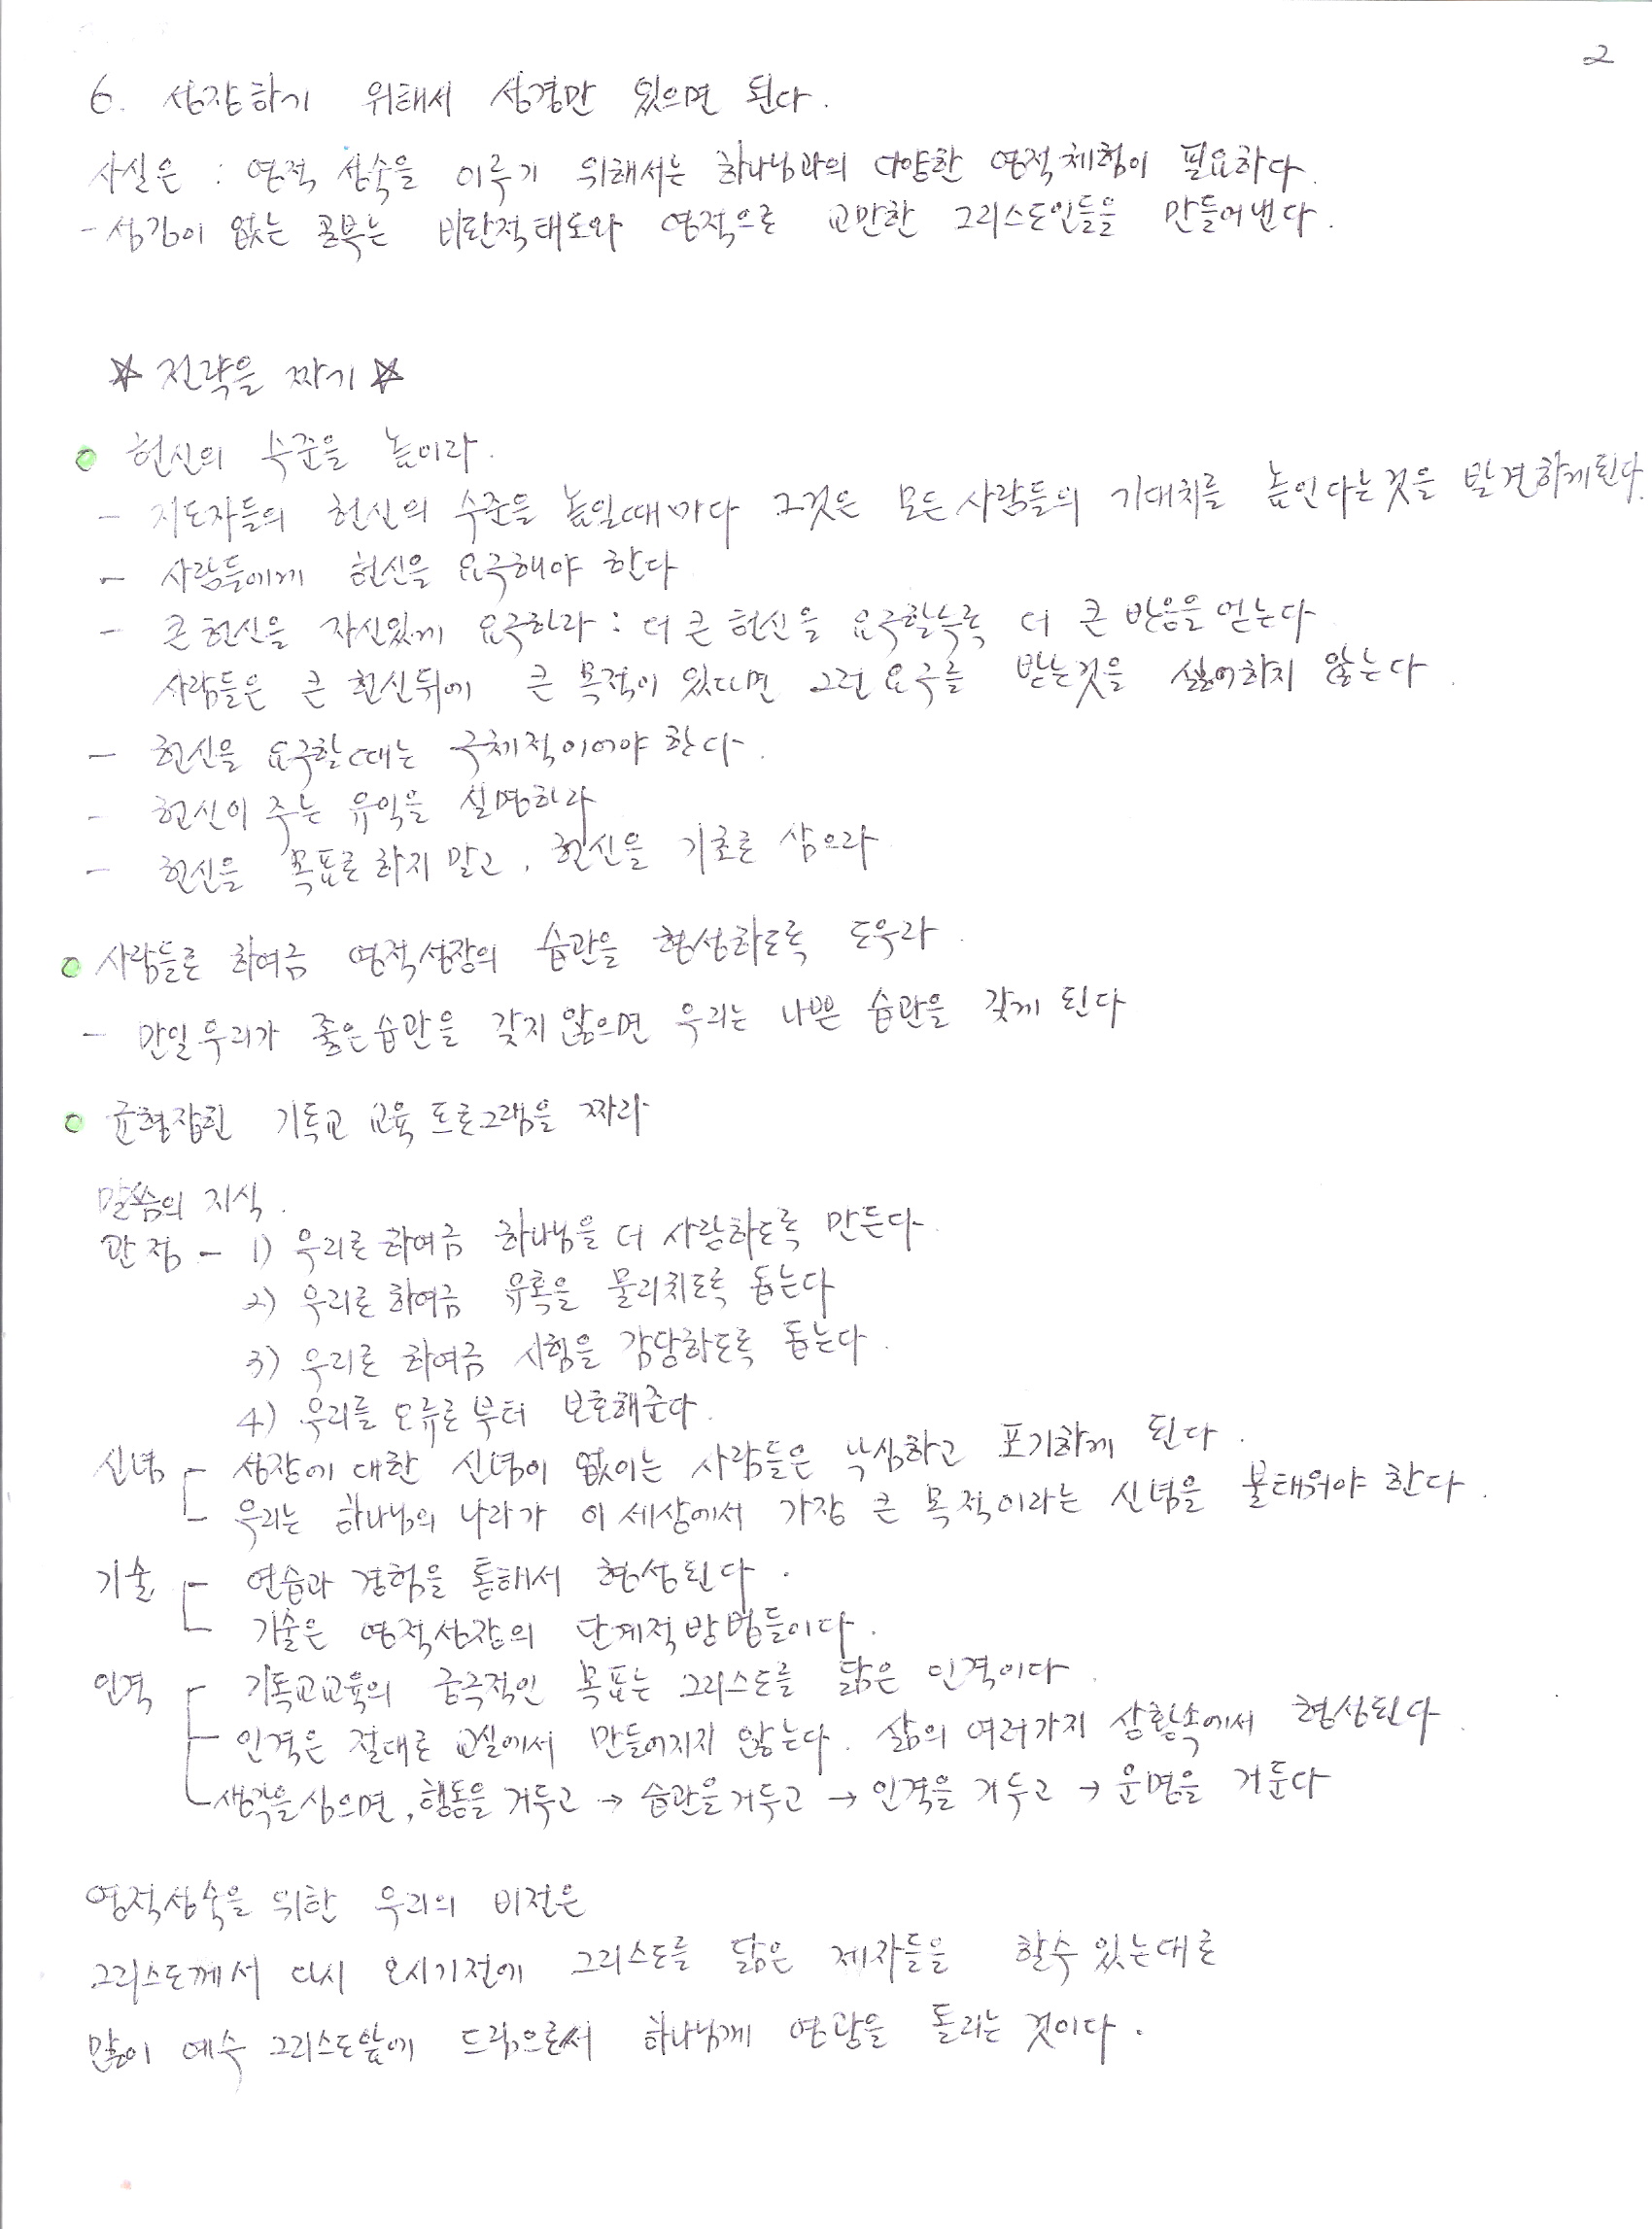 2
6. 성장하기 위해서 성경만 있으면 된다.
사실은 : 영적 성숙을 이루기 위해서는 하나님과의 다양한 영적체험이 필요하다.
- 섬김이 없는 공부는 비판적태도와 영적으로 교만한 그리스도인들을 만들어낸다.
☆ 전략을 짜기 ☆
○ 헌신의 수준을 높이라.
- 지도자들의 헌신의 수준을 높일때마다 그것은 모든사람들의 기대치를 높인다는것을 발견하게된다.
- 사람들에게 헌신을 요구해야 한다
- 큰헌신을 자신있게 요구하라 : 더 큰 헌신을 요구할수록 더 큰 반응을 얻는다
사람들은 큰 헌신뒤에 큰 목적이 있다면 그런요구를 받는것을 싫어하지 않는다.
- 헌신을 요구할때는 구체적이어야 한다.
- 헌신이 주는 유익을 설명하라
- 헌신을 목표로 하지 말고, 헌신을 기초로 삼으라
○ 사람들로 하여금 영적성장의 습관을 형성하도록 도우라.
- 만일우리가 좋은습관을 갖지않으면 우리는 나쁜 습관을 갖게 된다
○ 균형잡힌 기독교 교육 프로그램을 짜라
말씀의 지식.
관점 - 1) 우리로 하여금 하나님을 더 사랑하도록 만든다.
2) 우리로 하여금 유혹을 물리치도록 돕는다
3) 우리로 하여금 시험을 감당하도록 돕는다.
4) 우리를 오류로부터 보호해준다.
신념 - 성장에 대한 신념이 없이는 사람들은 낙심하고 포기하게 된다.
- 우리는 하나님의 나라가 이 세상에서 가장 큰 목적이라는 신념을 불태워야 한다.
기술 - 연습과 경험을 통해서 형성된다.
- 기술은 영적성장의 단계적방법들이다.
인격 - 기독교교육의 궁극적인 목표는 그리스도를 닮은 인격이다.
- 인격은 절대로 교실에서 만들어지지 않는다. 삶의 여러가지 상황속에서 형성된다.
- 생각을심으면, 행동을 거두고 → 습관을거두고 → 인격을 거두고 → 운명을 거둔다
영적성숙을 위한 우리의 비전은
그리스도께서 다시 오시기전에 그리스도를 닮은 제자들을 할수 있는대로
많이 예수 그리스도앞에 드림으로써 하나님께 영광을 돌리는 것이다.